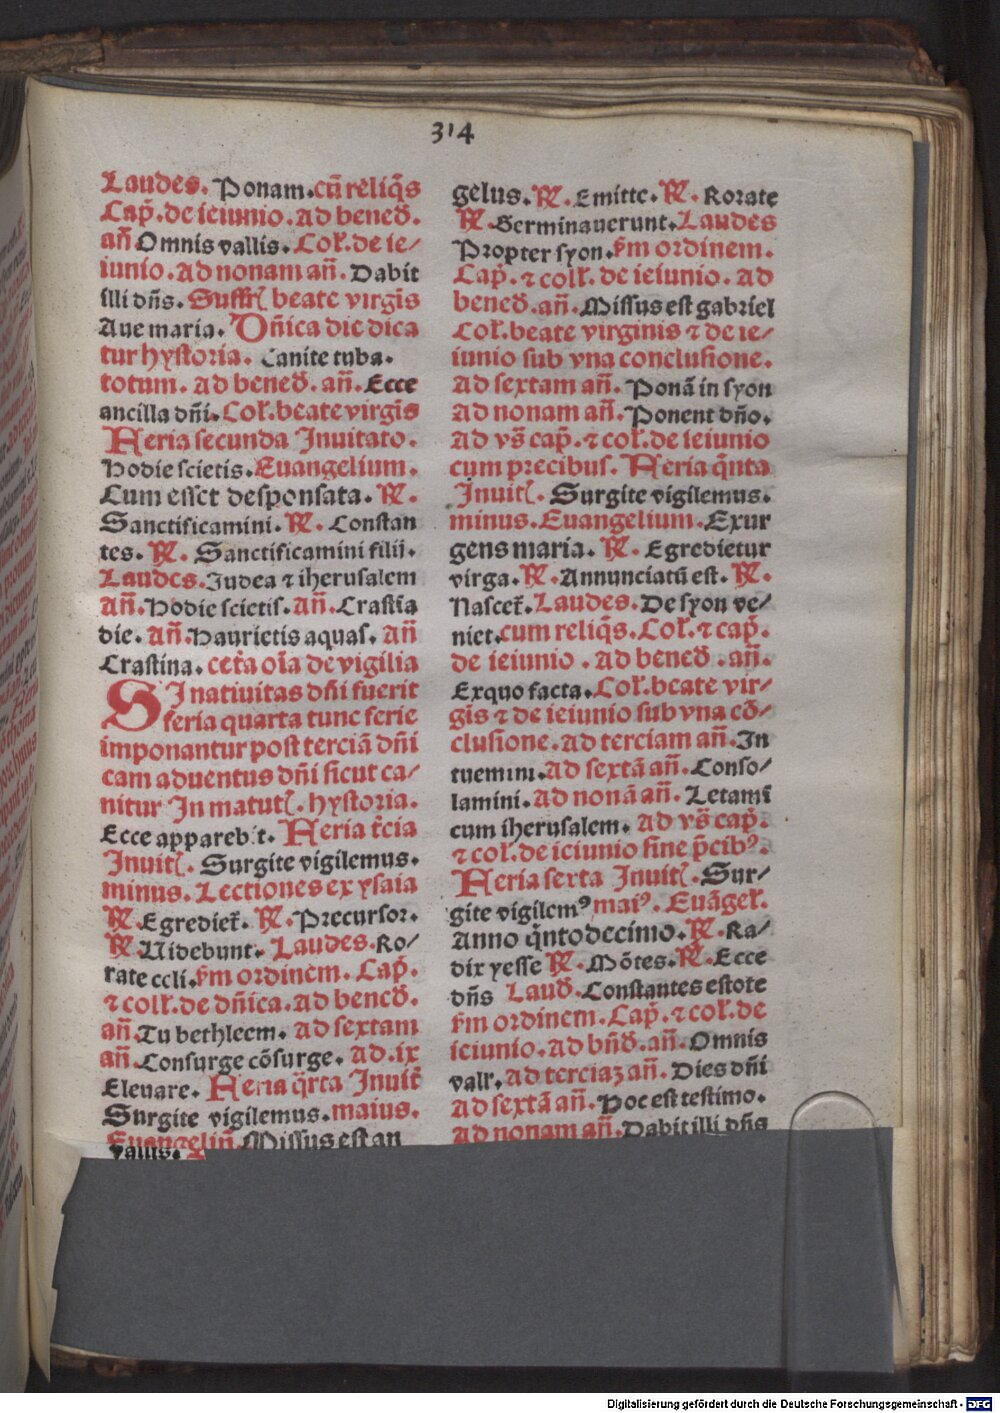 314
Laudes. Ponam. cū reliq̄s
Cap̄. de ieiunio. Ad bened̄.
añ Omnis vallis. Coł. de ie/
iunio. Ad nonam añ. Dabit
illi dñs. Suffrꝭ beate virgīs
Aue maria. Dñica die dica
tur hystoria. Canite tuba.
totum. Ad bened̄. añ. Ecce
ancilla dñi. Coł. beate virgīs
Feria secunda Inuitato.
Hodie scietis. Euangelium.
Cum esset desponsata. ℟.
Sanctificamini. ℟. Constan
tes. ℟. Sanctificamini filij.
Laudes. Iudea ⁊ iherusalem
Añ. Hodie scietis. Añ. Crastīa
die. Añ. Haurietis aquas. Añ
Crastina. cet̄a oīa de vigilia
SI natiuitas dñi fuerit
feria quarta tunc serie
imponantur post terciā dñi
cam aduentus dñi sicut ca/
nitur In matutꝭ. hystoria.
Ecce apparebit. Feria t̄cia
Inuitꝭ. Surgite vigilemus.
minus. Lectiones ex ysaia
℟. Egrediet̄. ℟. Precursor.
℟. Uidebunt. Laudes. Ro/
rate celi. s̄m ordinem. Cap̄.
⁊ coll̄. de dñica. Ad bened̄.
añ. Tu bethleem. Ad sextam
añ. Consurge cōsurge. Ad. ix
Eleuare. Feria q̄rta Inuit̄
Surgite vigilemus. maius.
Euangeliū. Missus est an
vallis.
gelus. ℟. Emitte. ℟. Rorate
℟. Germinauerunt. Laudes
Propter syon. s̄m ordinem.
Cap̄. ⁊ coll̄. de ieiunio. Ad
bened̄. añ. Missus est gabriel
Coł. beate virginis ⁊ de ie/
iunio sub vna conclusione.
Ad sextam añ. Ponā in syon
Ad nonam añ. Ponent dño.
Ad vs̄ cap̄. ⁊ coł. de ieiunio
cum precibus. Feria q̄nta
Inuitꝭ. Surgite vigilemus.
minus. Euangelium. Exur
gens maria. ℟. Egredietur
virga. ℟. Annunciatū est. ℟.
Nascet̄. Laudes. De syon ve/
niet. cum reliq̄s. Coł. ⁊ cap̄.
de ieiunio. Ad bened̄. añ.
Exquo facta. Coł. beate vir/
gīs ⁊ de ieiunio sub vna cō/
clusione. Ad terciam añ. In
tuemini. Ad sextā añ. Conso/
lamini. Ad nonā añ. Letamī
cum iherusalem. Ad vs̄ cap̄.
⁊ coł. de ieiunio sine p̄cibꝰ.
Feria sexta Inuitꝭ. Sur/
gite vigilemꝰ maiꝰ. Euāgeł.
Anno q̄ntodecimo. ℟. Ra/
dix yesse ℟. Mōtes. ℟. Ecce
dñs Laud̄. Constantes estote
s̄m ordinem. Cap̄. ⁊ coł. de
ieiunio. Ad bñd̄. añ. Omnis
vall̄. Ad terciaꝫ añ. Dies dñi
Ad sextā añ. Hoc est testimo.
Ad nonam añ. Dabit illi dñs
Digitalisierung gefördert durch die Deutsche Forschungsgemeinschaft - DFG